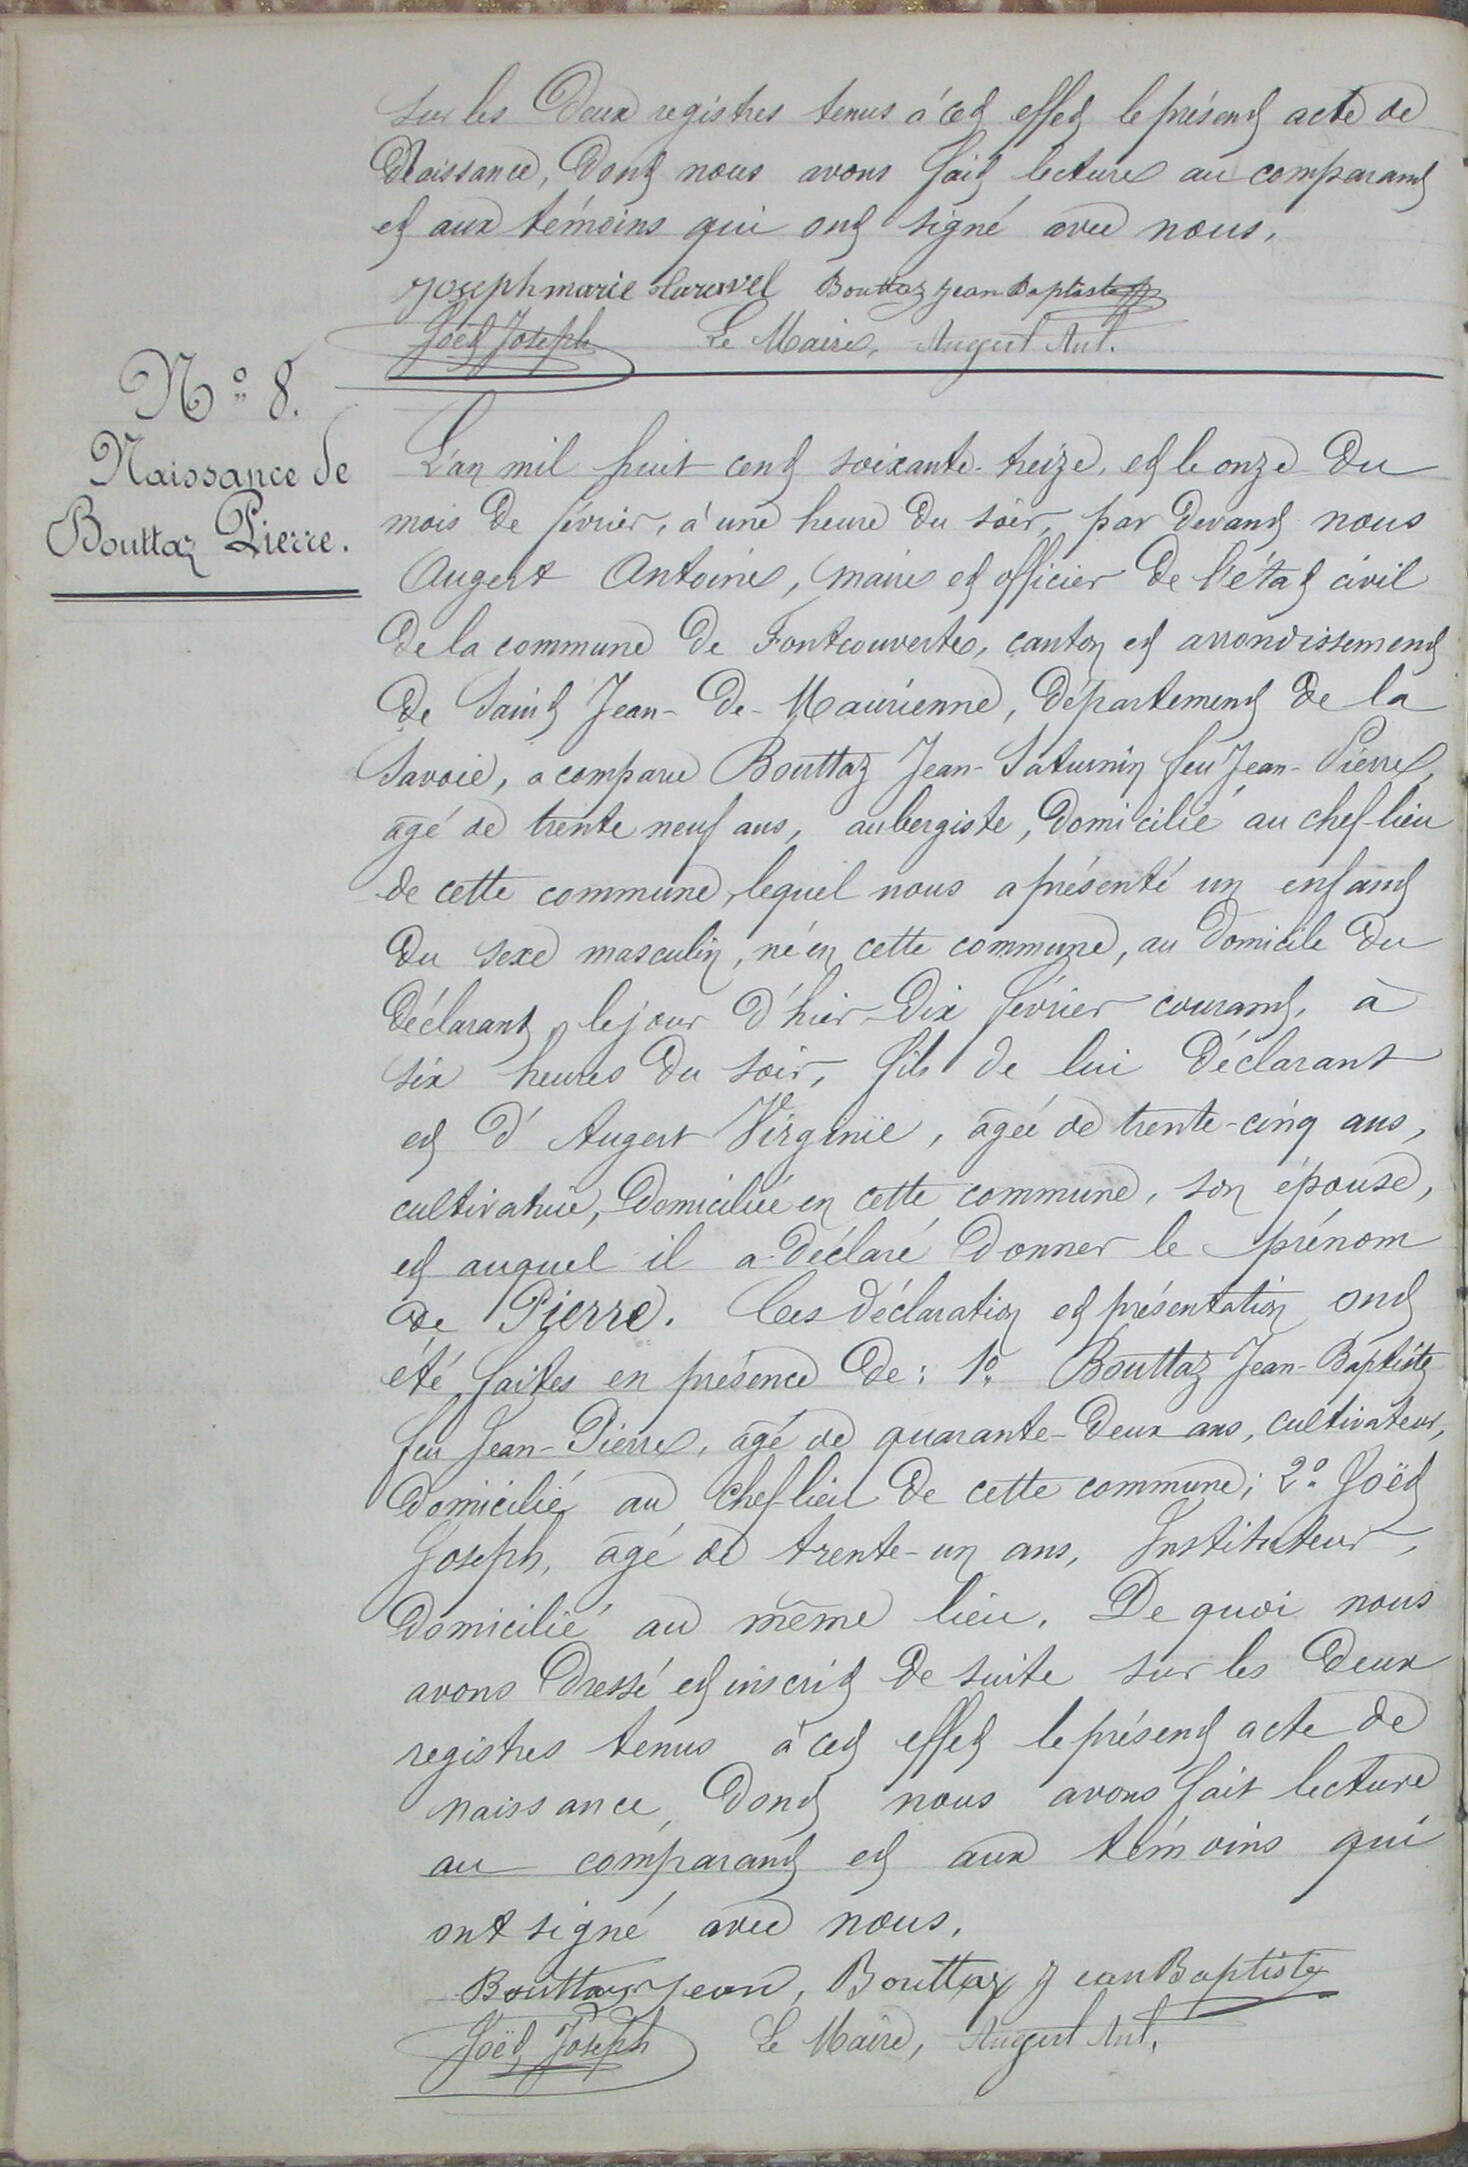 sur les deux registres tenus à cet effet le présent acte de
Naissance, dont nous avons fait lecture au comparant
et aux témoins qui ont signé avec nous.
Joseph marie Claravel Bouttaz Jean Baptiste
Joët Joseph Le Maire, Augert Ant.
N° 8.
Naissance de
Bouttaz Pierre.
L'an mil huit cent soixante-treize, et le onze du
mois de février, à une heure du soir, par devant nous
Augert Antoine, maire et officier de l'état civil
de la commune de Fontcouverte, canton et arrondissement
de Saint Jean-de-Maurienne, département de la
Savoie, a comparu Bouttaz Jean-Saturnin feu Jean-Pierre,
agé de trente neuf ans, aubergiste, domicilié au chef-lieu
de cette commune, lequel nous a présenté un enfant
du sexe masculin, né en cette commune, au domicile du
déclarant, le jour d'hier dix février courant, à
six heures du soir, fils de lui déclarant
et d'Augert Virginie, agée de trente-cinq ans,
cultivatrice, domiciliée en cette commune, son épouse,
et auquel il a déclaré donner le prénom
de Pierre. Ces déclaration et présentation ont
été faites en présence de: 1° Bouttaz Jean-Baptiste
feu Jean-Pierre, agé de quarante-deux ans, cultivateur,
domicilié au chef-lieu de cette commune; 2° Joët
Joseph, agé de trente-un ans, Instituteur,
domicilié au même lieu. De quoi nous
avons dressé et inscrit de suite sur les deux
registres tenus à cet effet le présent acte de
naissance, dont nous avons fait lecture
au comparant et aux témoins qui
ont signé avec nous.
Bouttaz Jean, Bouttaz Jean Baptiste
Joët Joseph Le Maire, Augert Ant.